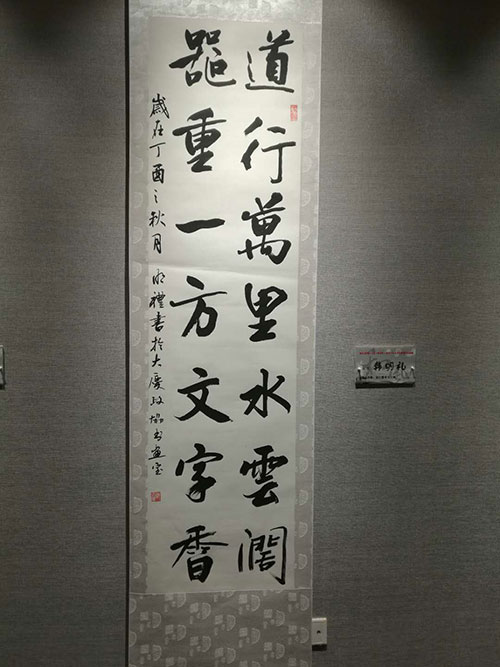 道行萬里水雲闊
器重一方文字香
歲在丁酉之秋月 明禮書於大慶政協書畫室